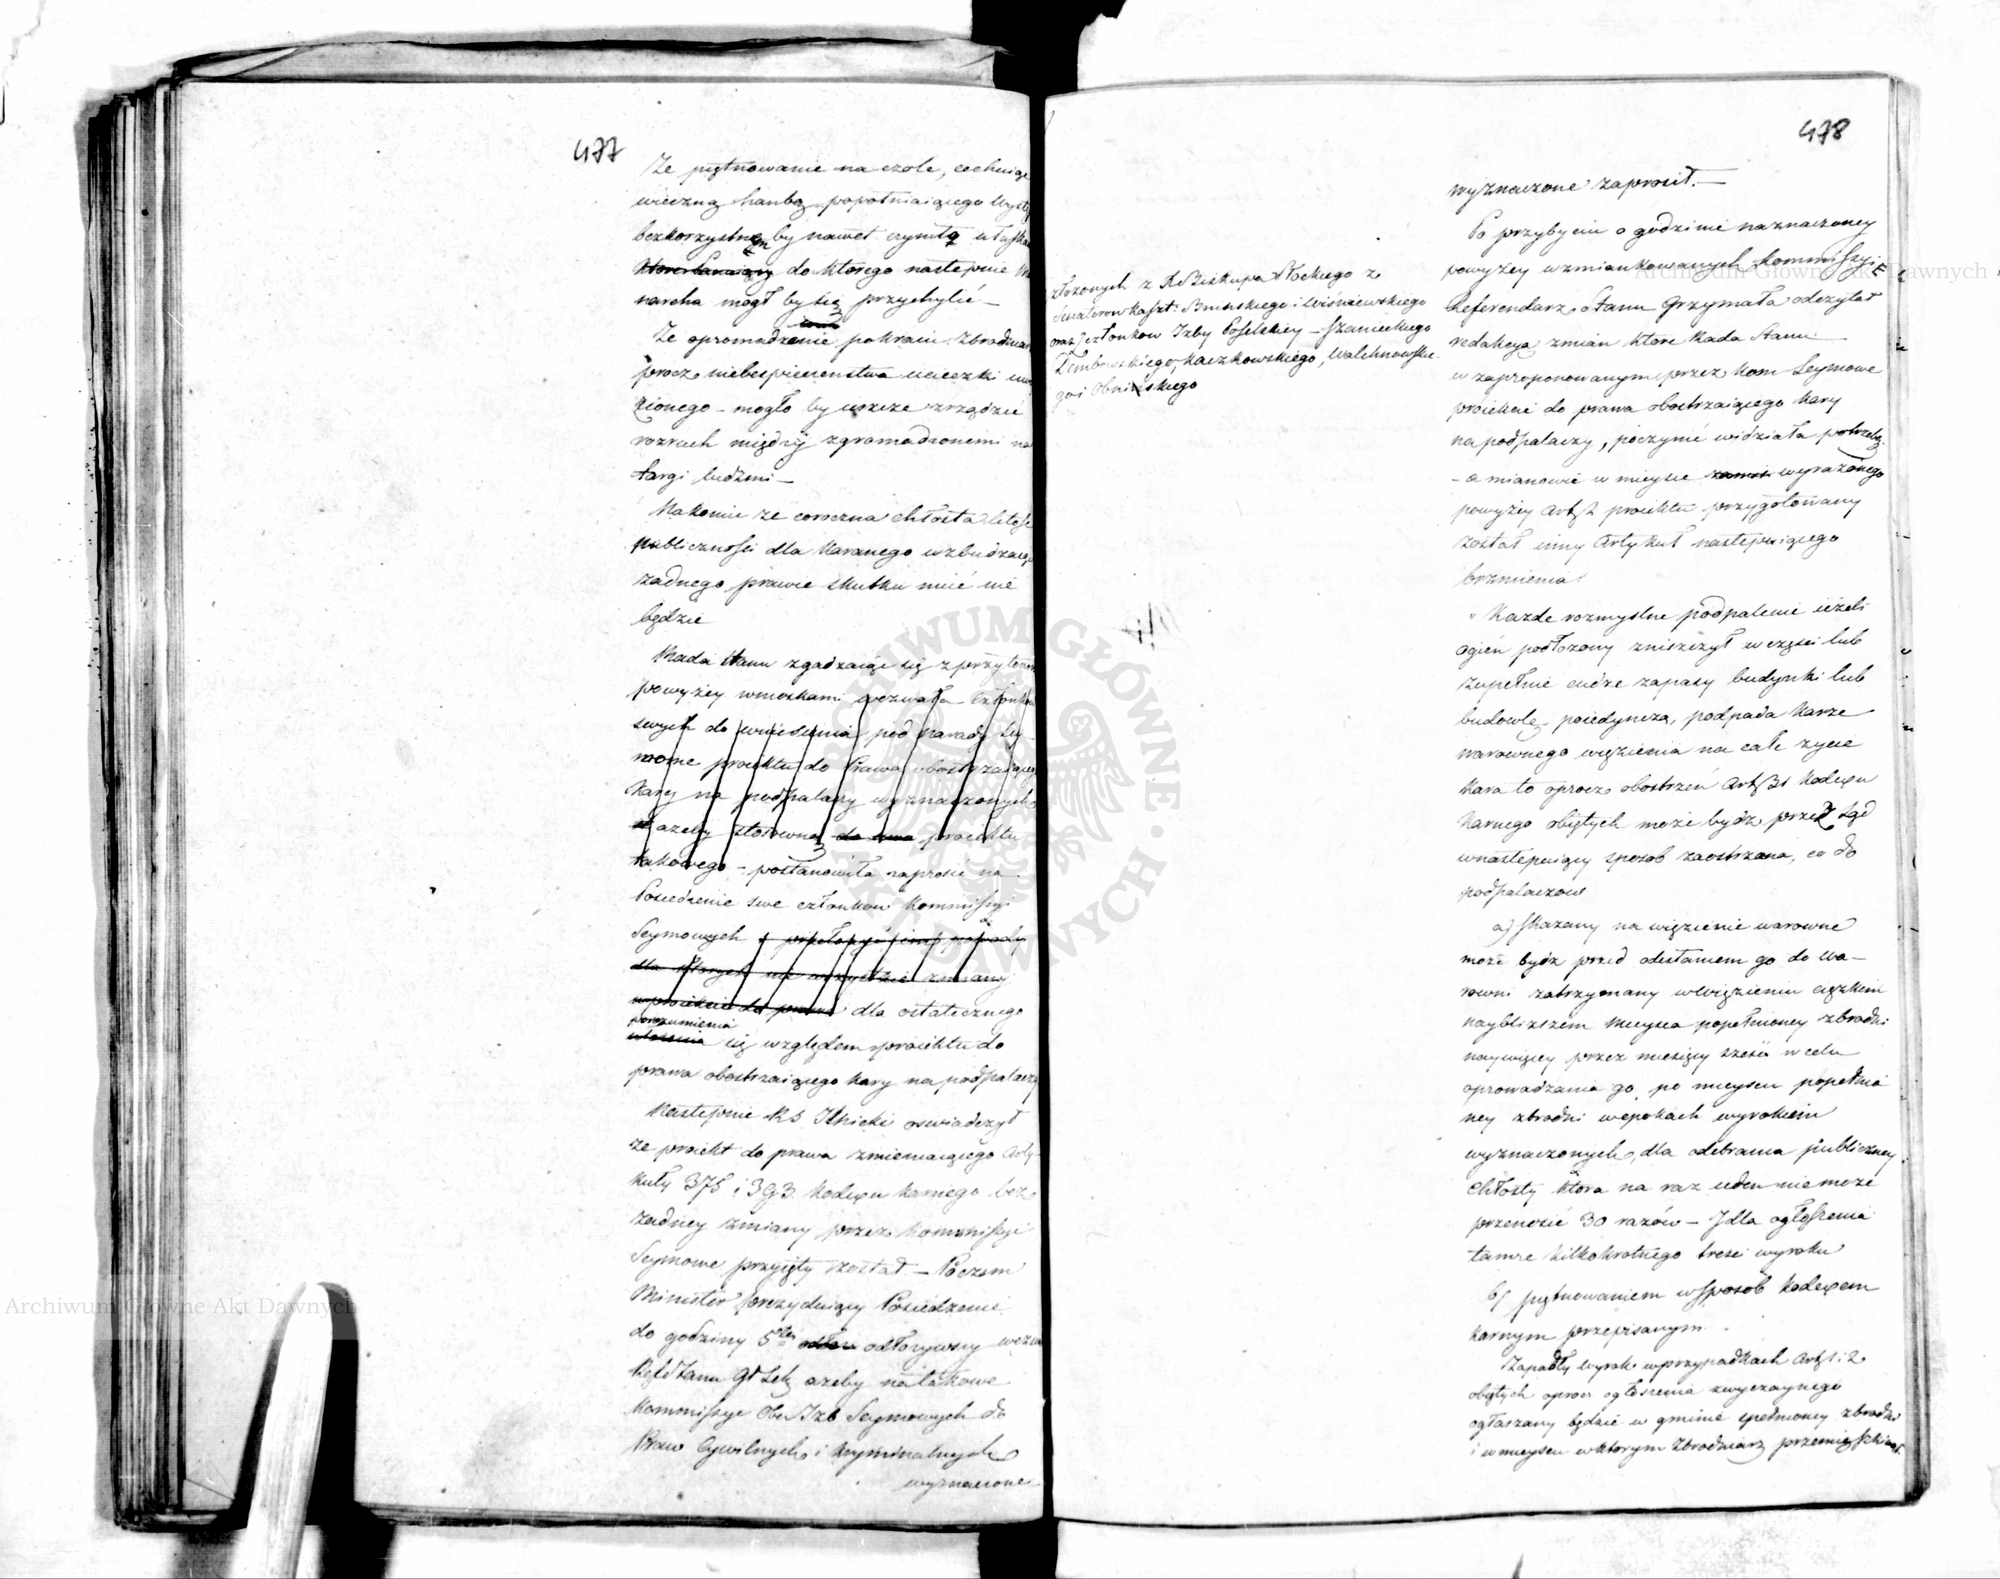 477
Ze piętnowanie na czole, cechuiąc
wieczną hanbą popołniaiącego Wystę
bezkorzystnem by nawet czyniło ułaska
do którego następnie Mo
narcha mogł by się przychylić —
Ze oprowadzanie po kraiu Zbrodniar
procz niebespieczenstwa ucieczki uwię
zionego — mogło by ieszcze zrządzić
rozruch między zgromadzonemi na
targi ludzmi —
Nakoniec ze coroczna chłosta litość
publicznosci dla karanego wzbudzaiąc
zadnego prawie skutku mieć nie
będzie
Rada Stanu zgadzaiąc się z przytoczo
powyżey wnioskami wezwała Członków
swych do wniesienia pod narady Sey-
mowe proiektu do Prawa obostrzaiącego
Kary na podpalaczy wyznaczonych
azeby stosownie do proiektu
takowego — postanowiła zaprosić na
Posiedzenie swe członkow Kommissyi
Seymowych
dla których zmiany
w proiekcie do prawa dla ostatecznego
porozumienia
się względem proiektu do
prawa obostrzaiącego kary na podpalaczy
Następnie RS Ilnicki oswiadczył
ze proiekt do prawa zmieniaiącego Arty-
kuły 375 i 393 Kodexu karnego bez
zadney zmiany przez Kommissye
Seymowe przyięty został — Poczem
Minister prezyduiący Posiedzenie
do godziny 5tey odłożywszy wezwał
azeby na takowe
Kommissye Obu Izb Seymowych do
Praw Cywilnych i kryminalnych
wyznaczone
478
wyznaczone zaprosił. —
Po przybyciu o godzinie naznaczoney
powyżey wzmiankowanych Kommissyi
złożonych z X Biskupa Płockiego z
Senatorow Kaszt: Bninskiego i Wiśniewskiego
oraz członkow Izby Poselskiey — Szanieckiego
Dembowskiego, Kaczkowskiego, Walchnowskie-
go i Obninskiego
Referendarz Stanu Grzymała odczytał
redakcyą zmian ktore Rada Stanu
w zaproponowanym przez Kom Seymowe
proiekcie do prawa obostrzaiącego kary
na podpalaczy, poczynić widziała potrzebę
— a mianowicie w mieysce wyrażonego
powyżey Arty 2 proiektu przygotowany
został inny Artykuł następuiącego
brzmienia:
" Kazde rozmyslne podpalenie ieżeli
ogień podłożony zniszczył w częsci lub
zupełnie cudze zapasy budynki lub
budowlę poiedynczą, podpada karze
warownego więzienia na całe zycie
kara ta oprocz obostrzeń Arty 31 Kodexu
Karnego obiętych może bydz przez Sąd
w następuiący sposob zaostrzona, co do
podpalaczow
a) Skazany na więzienie warowne
może bydz przed odesłaniem go do wa-
rowni zatrzymany w więzieniu ciężkiem
naybliższem mieysca popełnioney zbrodni
naywięcy przez miesięcy sześć w celu
oprowadzania go po mieyscu popełnio
ney zbrodni w epokach wyrokiem
wyznaczonych, dla odebrania publiczney
chłosty ktora na raz ieden nie może
przenosić 30 razów — I dla ogłoszenia
tamże kilkokrotnego tresci wyroku
b) piętnowaniem w sposob kodexem
karnym przepisanym
Zapadły wyrok w przypadkach Arty 1 i 2
obiętych oprocz ogłoszenia zwyczaynego
ogłaszany będzie w gminie spełnioney zbrodni
i w mieyscu w ktorym Zbrodniarz przemieszkiwał
ARCHIWUM GŁÓWNE AKT DAWNYCH
Archiwum Główne Akt Dawnych
Archiwum Główne Akt Dawnych